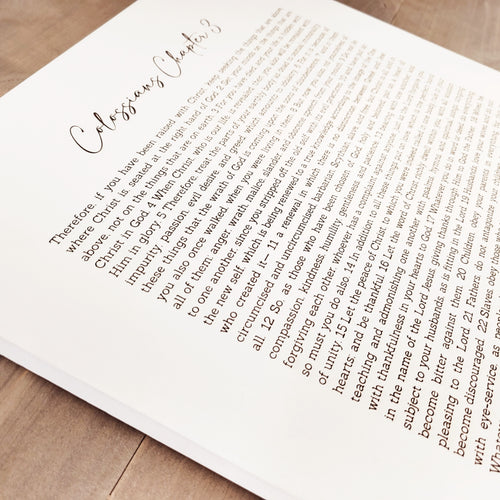 Colossians Chapter 3
Therefore, if you have been raised with Christ, keep seeking the things that are above
where Christ is, seated at the right hand of God. 2 Set your minds on the things that are
above, not on the things that are on earth. 3 For you have died, and your life is hidden with
Christ in God. 4 When Christ, who is our life, is revealed, then you also will be revealed with
Him in glory. 5 Therefore, treat the parts of your earthly body as dead to sexual immorality,
impurity, passion, evil desire, and greed, which amounts to idolatry. 6 For it is because of
these things that the wrath of God is coming upon the sons of disobedience, 7 and in them
you also once walked, when you were living in them. 8 But now you also, rid yourselves of
all of them: anger, wrath, malice, slander, and obscene speech from your mouth. 9 Do not lie
to one another, since you stripped off the old self with its evil practices, 10 and have put on
the new self, which is being renewed to a true knowledge according to the image of the One
who created it— 11 a renewal in which there is no distinction between Greek and Jew,
circumcised and uncircumcised, barbarian, Scythian, slave, and free, but Christ is all, and in
all. 12 So, as those who have been chosen of God, holy and beloved, put on a heart of
compassion, kindness, humility, gentleness, and patience; 13 bearing with one another, and
forgiving each other, whoever has a complaint against anyone; just as the Lord forgave you,
so must you do also. 14 In addition to all these things put on love, which is the perfect bond
of unity. 15 Let the peace of Christ, to which you were indeed called in one body, rule in your
hearts; and be thankful. 16 Let the word of Christ richly dwell within you, with all wisdom
teaching and admonishing one another with psalms, hymns, and spiritual songs, singing
with thankfulness in your hearts to God. 17 Whatever you do in word or deed, do everything
in the name of the Lord Jesus, giving thanks through Him to God the Father. 18 Wives, be
subject to your husbands, as is fitting in the Lord. 19 Husbands, love your wives and do not
become bitter against them. 20 Children, obey your parents in
pleasing to the Lord. 21 Fathers, do not antagonize your
become discouraged. 22 Slaves, obey those
with eye-service, as people
Whatever